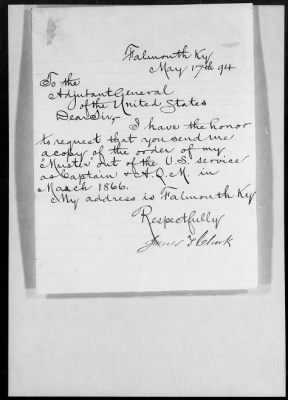 Falmouth Ky
May 17th 94
To the
Adjutant General
of the United States
Dear Sir,
I have the honor
to request that you send me
a copy of the order of my
"Muster" out of the U.S. service
as Captain & A.Q.M. in
March 1866.
My address is Falmouth Ky
Respectfully
James Clark